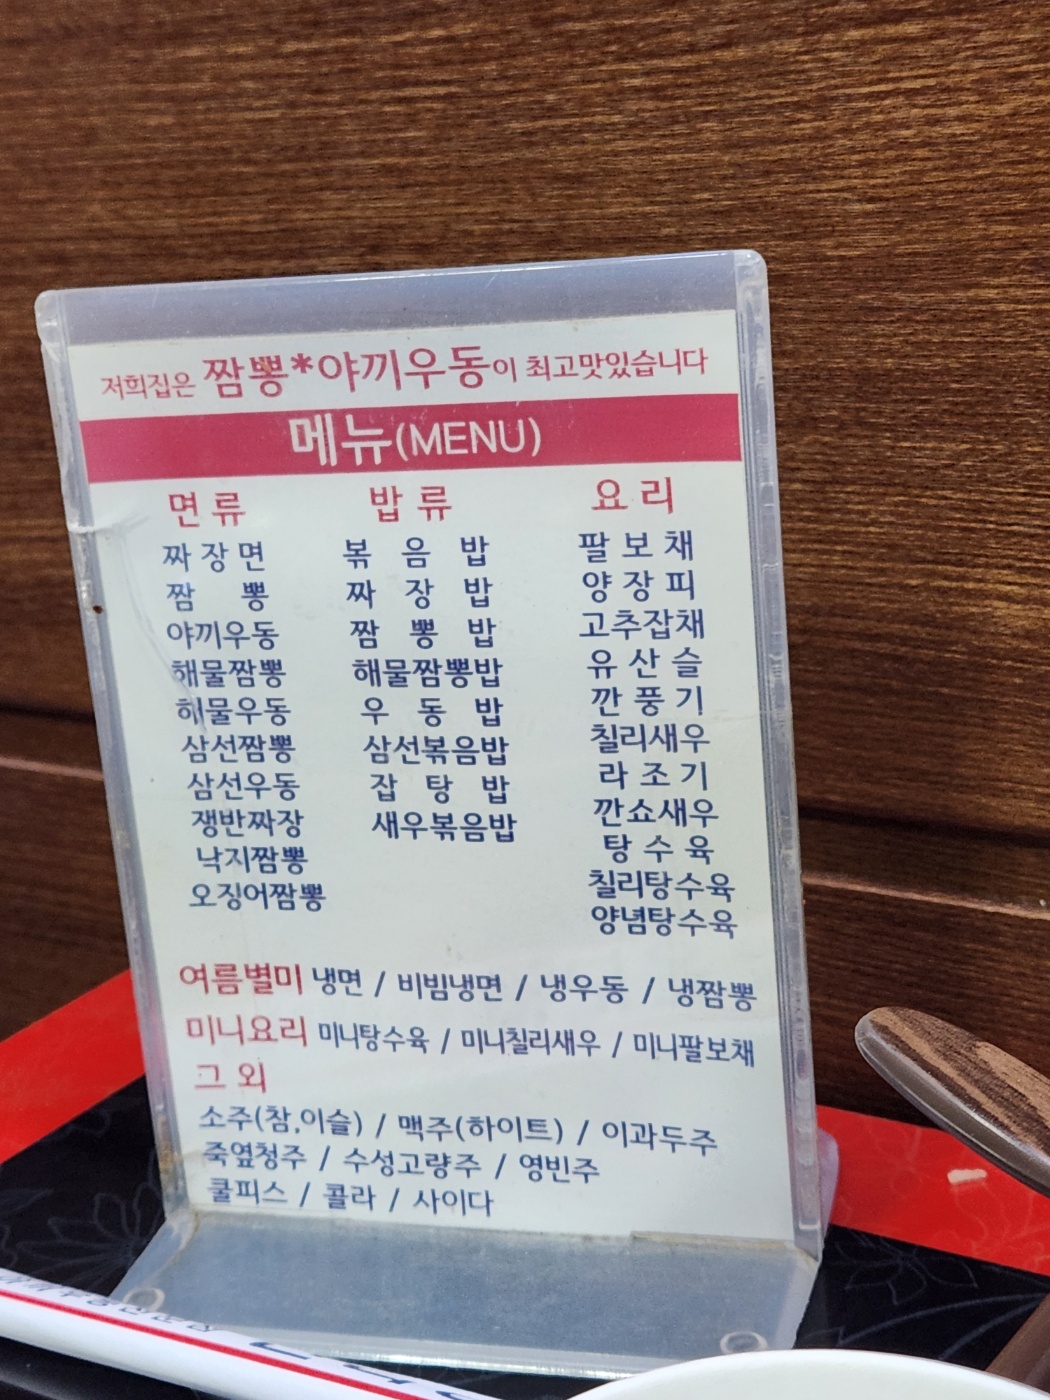 저희집은 짬뽕*야끼우동이 최고맛있습니다
메뉴(MENU)
면류 밥류 요리
짜장면 볶음밥 팔보채
짬뽕 짜장밥 양장피
야끼우동 짬뽕밥 고추잡채
해물짬뽕 해물짬뽕밥 유산슬
해물우동 우동밥 깐풍기
삼선짬뽕 삼선볶음밥 칠리새우
삼선우동 잡탕밥 라조기
쟁반짜장 새우볶음밥 깐쇼새우
낙지짬뽕 탕수육
오징어짬뽕 칠리탕수육
양념탕수육
여름별미 냉면 / 비빔냉면 / 냉우동 / 냉짬뽕
미니요리 미니탕수육 / 미니칠리새우 / 미니팔보채
그 외
소주(참,이슬) / 맥주(하이트) / 이과두주
죽엽청주 / 수성고량주 / 영빈주
쿨피스 / 콜라 / 사이다